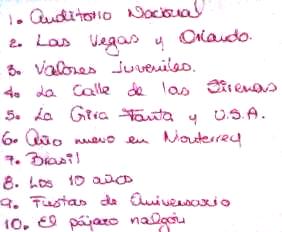 1. Auditorio Nacional
2. Las Vegas y Orlando.
3. Valores Juveniles.
4. La Calle de las Sirenas
5. La Gira Fanta y U.S.A.
6. Año nuevo en Monterrey
7. Brasil
8. Los 10 años
9. Fiestas de Aniversario
10. El pájaro nalgón